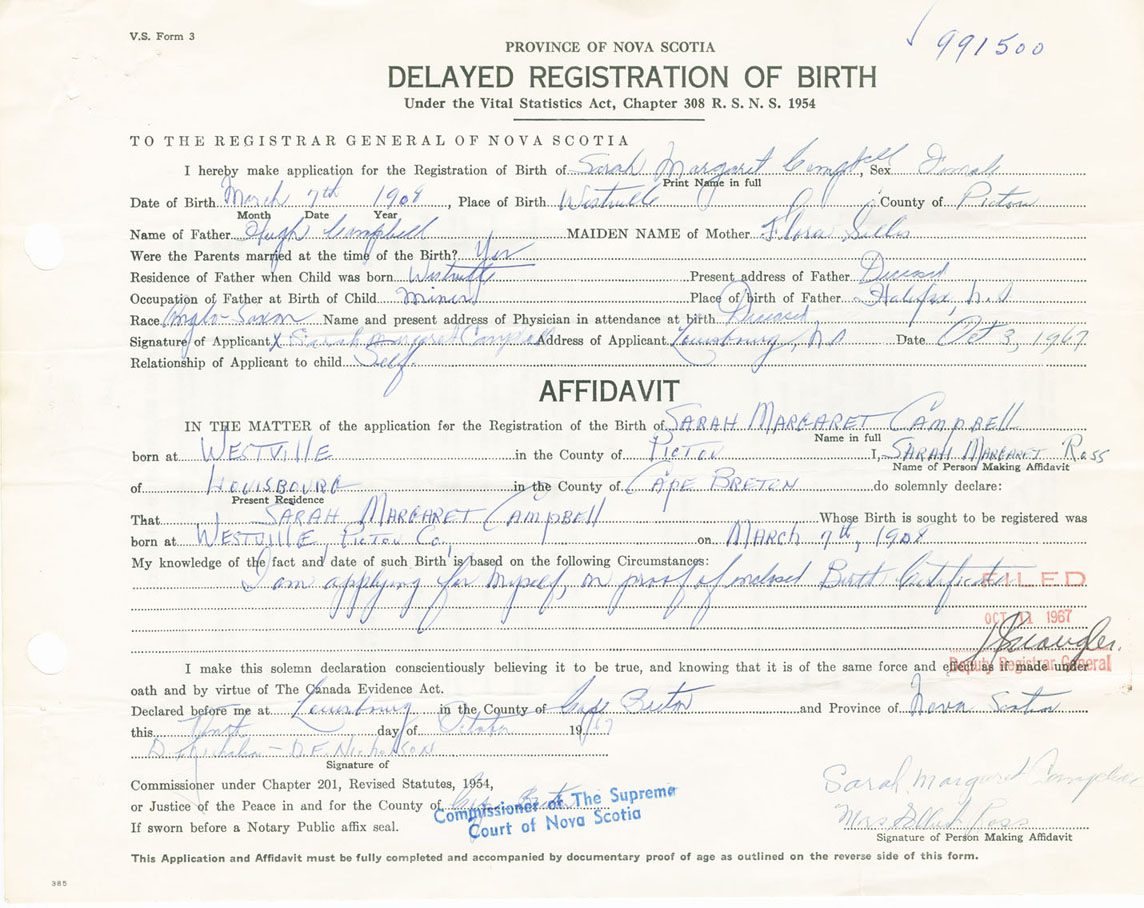 V.S. Form 3
991500
PROVINCE OF NOVA SCOTIA
DELAYED REGISTRATION OF BIRTH
Under the Vital Statistics Act, Chapter 308 R. S. N. S. 1954
TO THE REGISTRAR GENERAL OF NOVA SCOTIA
I hereby make application for the Registration of Birth of Sarah Margaret Campbell, Sex Female
Print Name in full
Date of Birth March 7th 1908, Place of Birth Westville; County of Pictou
Month Date Year
Name of Father Hugh Campbell MAIDEN NAME of Mother Flora Sellis
Were the Parents married at the time of the Birth? Yes
Residence of Father when Child was born Westville Present address of Father Deceased
Occupation of Father at Birth of Child Miner Place of birth of Father Halifax, N.S
Race Anglo-Saxon Name and present address of Physician in attendance at birth Deceased
Signature of Applicant X Sarah Margaret Campbell Address of Applicant Louisbourg, N.S Date Oct 3, 1967
Relationship of Applicant to child Self.
AFFIDAVIT
IN THE MATTER of the application for the Registration of the Birth of SARAH MARGARET CAMPBELL
Name in full
born at WESTVILLE in the County of PICTOU I, SARAH MARGARET ROSS
Name of Person Making Affidavit
of LOUISBOURG in the County of CAPE BRETON do solemnly declare:
Present Residence
That SARAH MARGARET CAMPBELL Whose Birth is sought to be registered was
born at WESTVILLE, PICTOU CO. on MARCH 7th, 1908
My knowledge of the fact and date of such Birth is based on the following Circumstances:
I am applying for myself, on proof of enclosed Birth Certificate
FILED
OCT 11 1967
Deputy Registrar General
I make this solemn declaration conscientiously believing it to be true, and knowing that it is of the same force and effect as if made under
oath and by virtue of The Canada Evidence Act.
Declared before me at Louisbourg in the County of Cape Breton and Province of Nova Scotia
this day of October 1967
D.F. Nicholson
Signature of
Commissioner under Chapter 201, Revised Statutes, 1954,
or Justice of the Peace in and for the County of Cape Breton
Commissioner of The Supreme
Court of Nova Scotia
If sworn before a Notary Public affix seal.
Sarah Margaret Campbell
Mrs Ross
Signature of Person Making Affidavit
This Application and Affidavit must be fully completed and accompanied by documentary proof of age as outlined on the reverse side of this form.
385